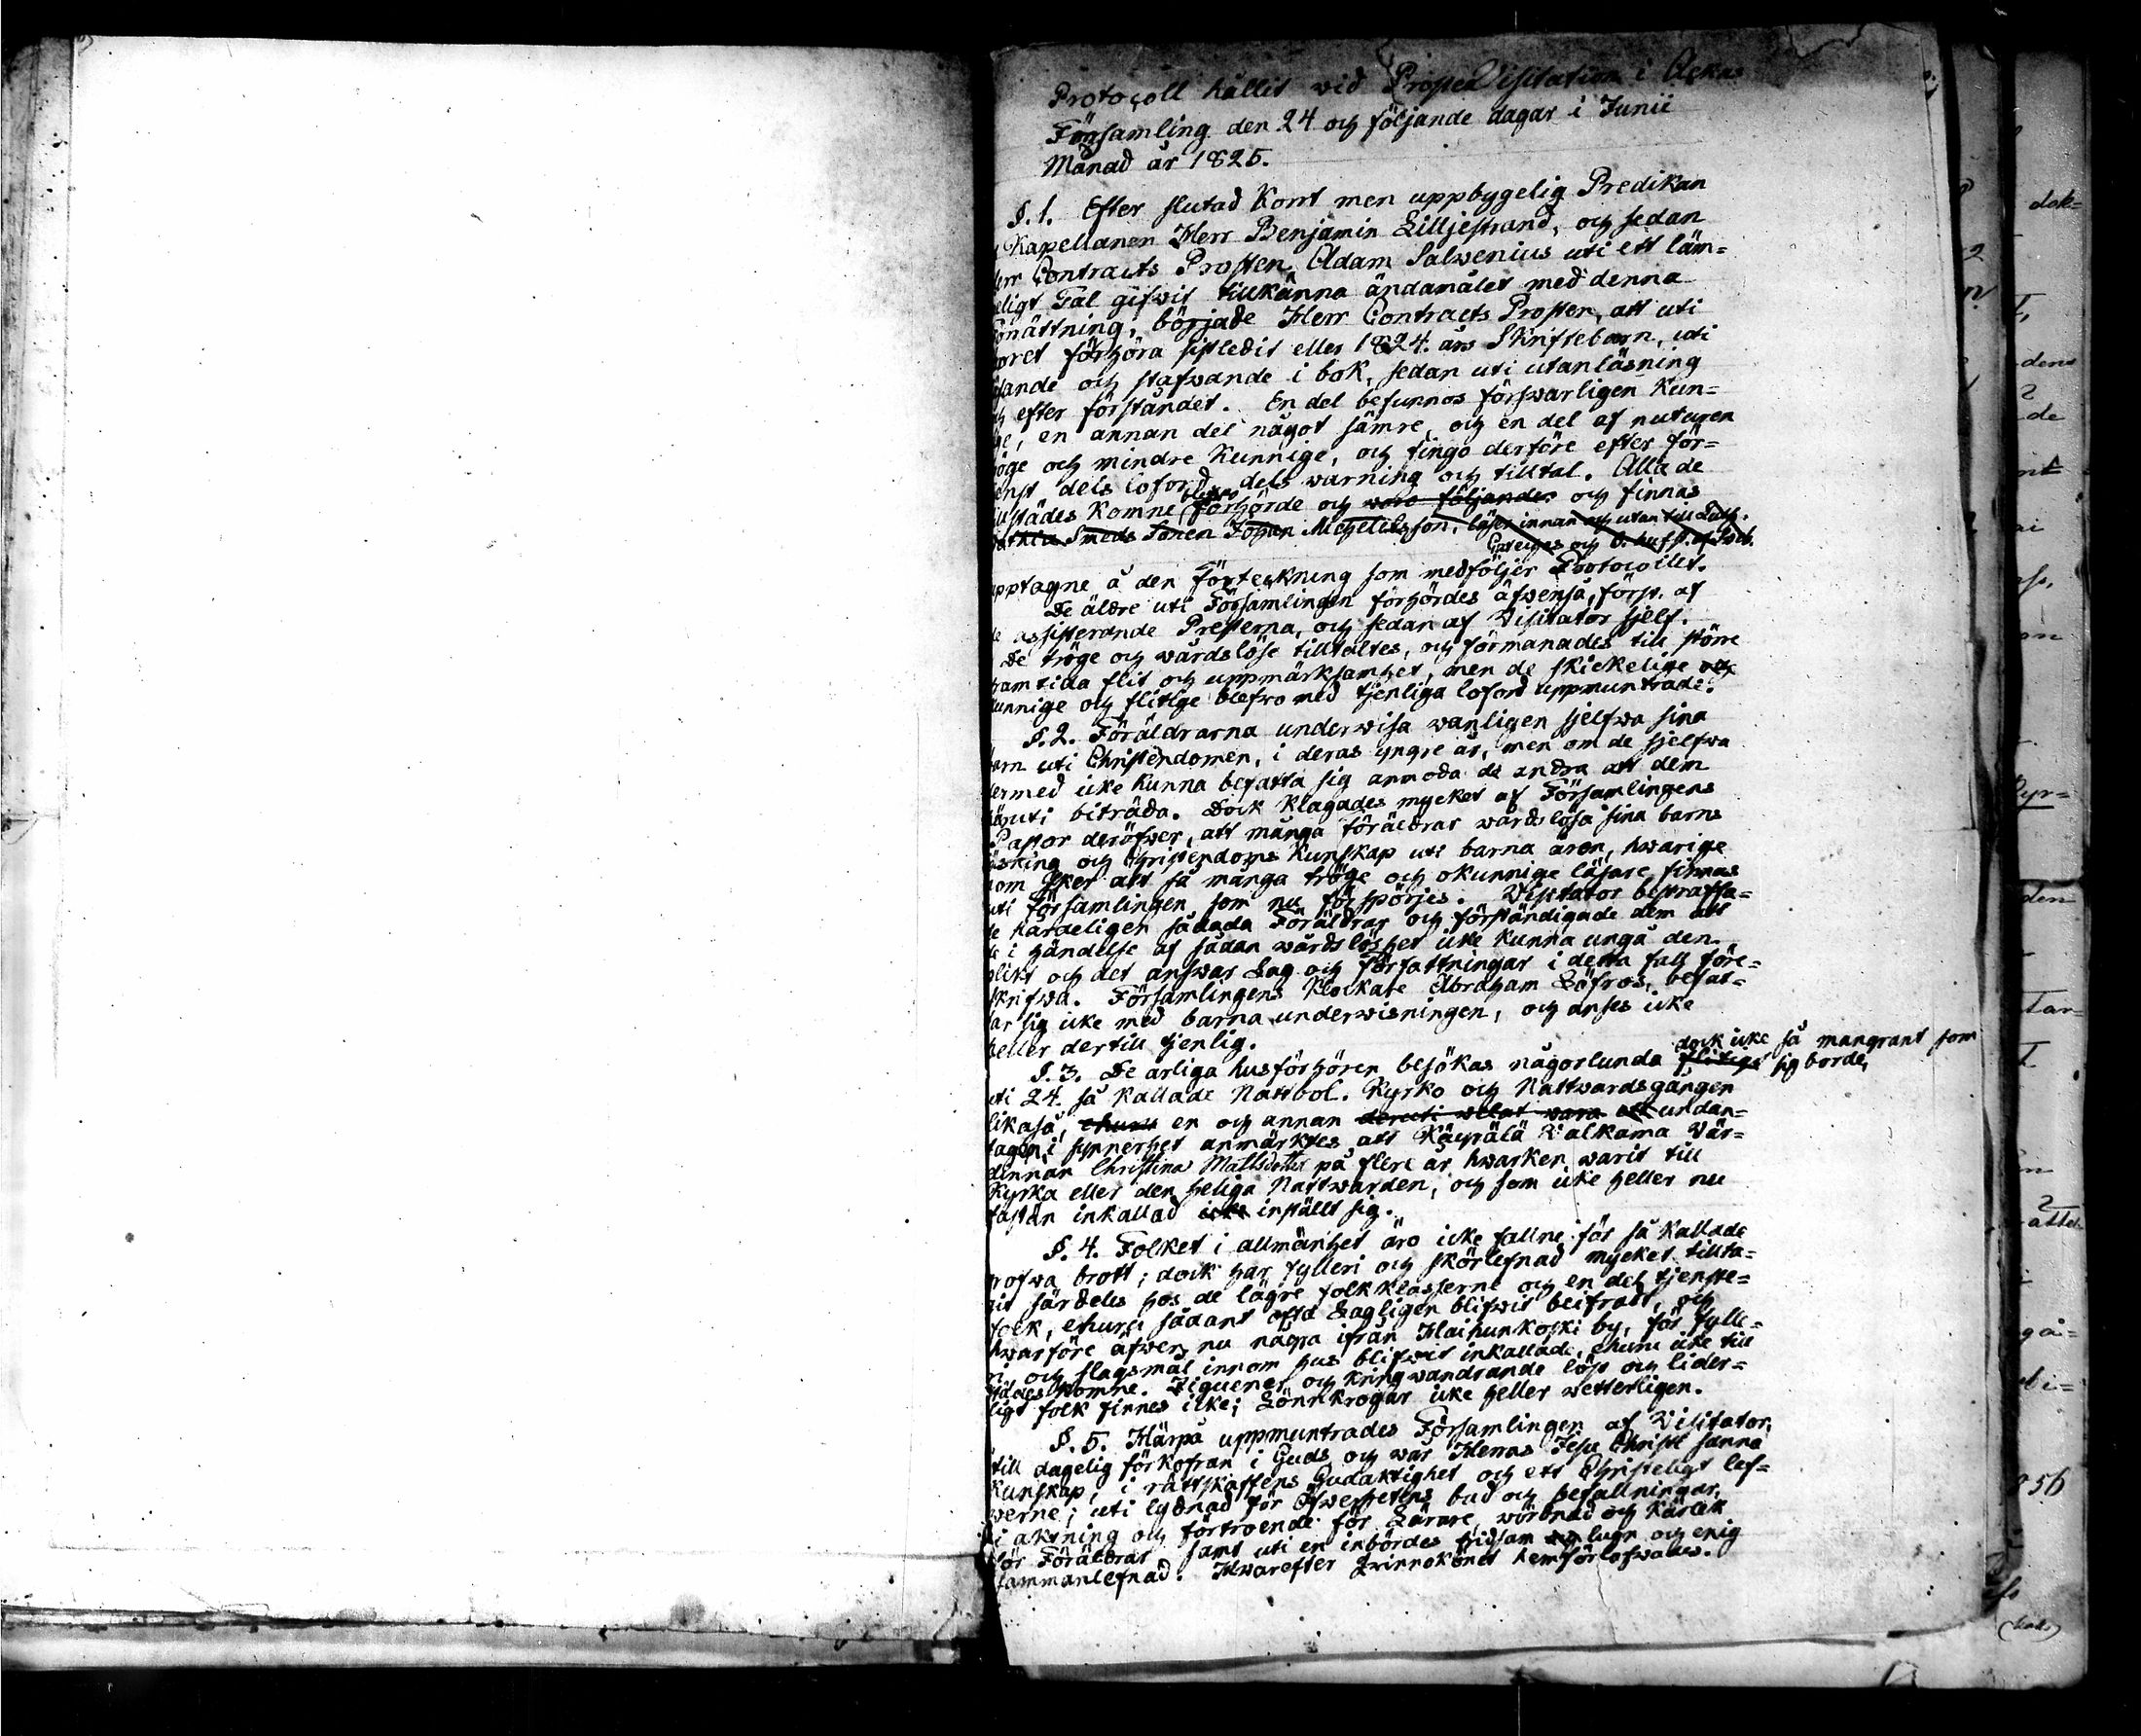 Protocoll hållit vid Prosten Visitation i Ackas
Församling den 24 och följande dagar i Junii
Månad år 1825.
§. 1. Efter slutad kort men uppbygelig Predikan
Kapellanen Herr Benjamin Lilljestrand, och sedan
err Contracts Prosten Adam Salvenius uti ett läm-
eligt Tal gifwit tillkänna ändamålet med denna
örrättning, började Herr Contracts Prosten, att uti
oret förhöra sistledit eller 1824. års Skriftebarn, uti
sande och stafwande i bok, sedan uti utanläsning
h efter förståndet. En del befunnos förswarligen kun-
ge, en annan del något sämre, och en del af naturen
öge och mindre kunnige, och fingo derföre efter för-
enst dels loford dels warning och tilltal. Alla de
ll städes komne blefwo förhörde och woro följande: och finnas
Smeds Sonen Johan Michelsson, läser innan och utan till Luth.
Cateches och
upptagne å den förteckning som medföljer Protocollet.
De äldre uti Församlingen förhördes äfwenså, först af
de assisterande Presterna, och sedan af Visitator sjelf.
De tröge och wårdslöse tilltaltes, och förmanades till större
framtida flit och uppmärksamhet, men de skickelige och
kunnige och flitige blefwo med tjenliga loford uppmuntrade.
§. 2. Föräldrarna underwisa wanligen sjelfwa sina
barn uti Christendomen, i deras yngre år, men om de sjelfwa
dermed icke kunna befatta sig anmoda de andra att dem
häruti biträda. Dock klagades mycket af Församlingens
Pastor deröfwer, att många föräldrar wårdslösa sina barns
läsning och Christendoms kunskap uti barna åren, hwarige
nom sker att så många tröge och okunnige läsare finnas
uti församlingen som nu förspörjes. Visitator bestraffa-
de hårdeligen sådada Föräldrar och förständigade dem att
de i händelse af sådan wårdslöshet icke kunna ungå den
plikt och det answar Lag och Författningar i detta fall före-
skrifwa. Församlingens Klockare Abraham Löfros, befat-
tar sig icke med barna underwisningen, och anses icke
heller dertill tjenlig.
§. 3. De årliga husförhören besökas någorlunda flitigt dock icke så mangrant som sig borde,
uti 24. så kallade Nattbol. Kyrko och Nattwardsgången
likaså, ehuru en och annan deruti velat vara att undan-
tagen; i synnerhet anmärktes att Käupälä Valkama Vär-
dinnan Christina Mattsdotter på flere år, hwarken warit till
Kyrka eller den heliga Nattwarden, och som icke heller nu
fastän inkallad icke inställt sig.
§. 4. Folket i allmänhet äro icke fallne för så kallade
grofwa brott; dock har fylleri och skörlefnad mycket tillta-
git särdeles hos de lägre folkklasserne och en del tjenste-
folk, ehuru sådant ofta Lagligen blifwit beifradt, och
hwarföre äfwen nu några ifrån Haihunkoski by, för fylle-
ri och slagsmål innom hus blifwit inkallade, ehuru icke till
städes komne. Ziguener och kringwandrande löst och lider-
ligt folk finnes icke; Lönnkrogar icke heller wetterligen.
§. 5. Härpå uppmuntrades Församlingen af Visitator,
till dagelig förkofran i Guds och wår Herras Jesu Christi sanna
Kunskap, i rättskaffens Gudaktighet och ett Christeligt lef-
werne; uti lydnad för Öfwerhetens bud och befallningar,
i aktning och förtroende för Lärare, wördnad och kärlek
för Föräldrar samt uti en inbördes fridsam och lugn och enig
sammanlefnad. Hwarefter Qvinnokönet hemförlofwades.